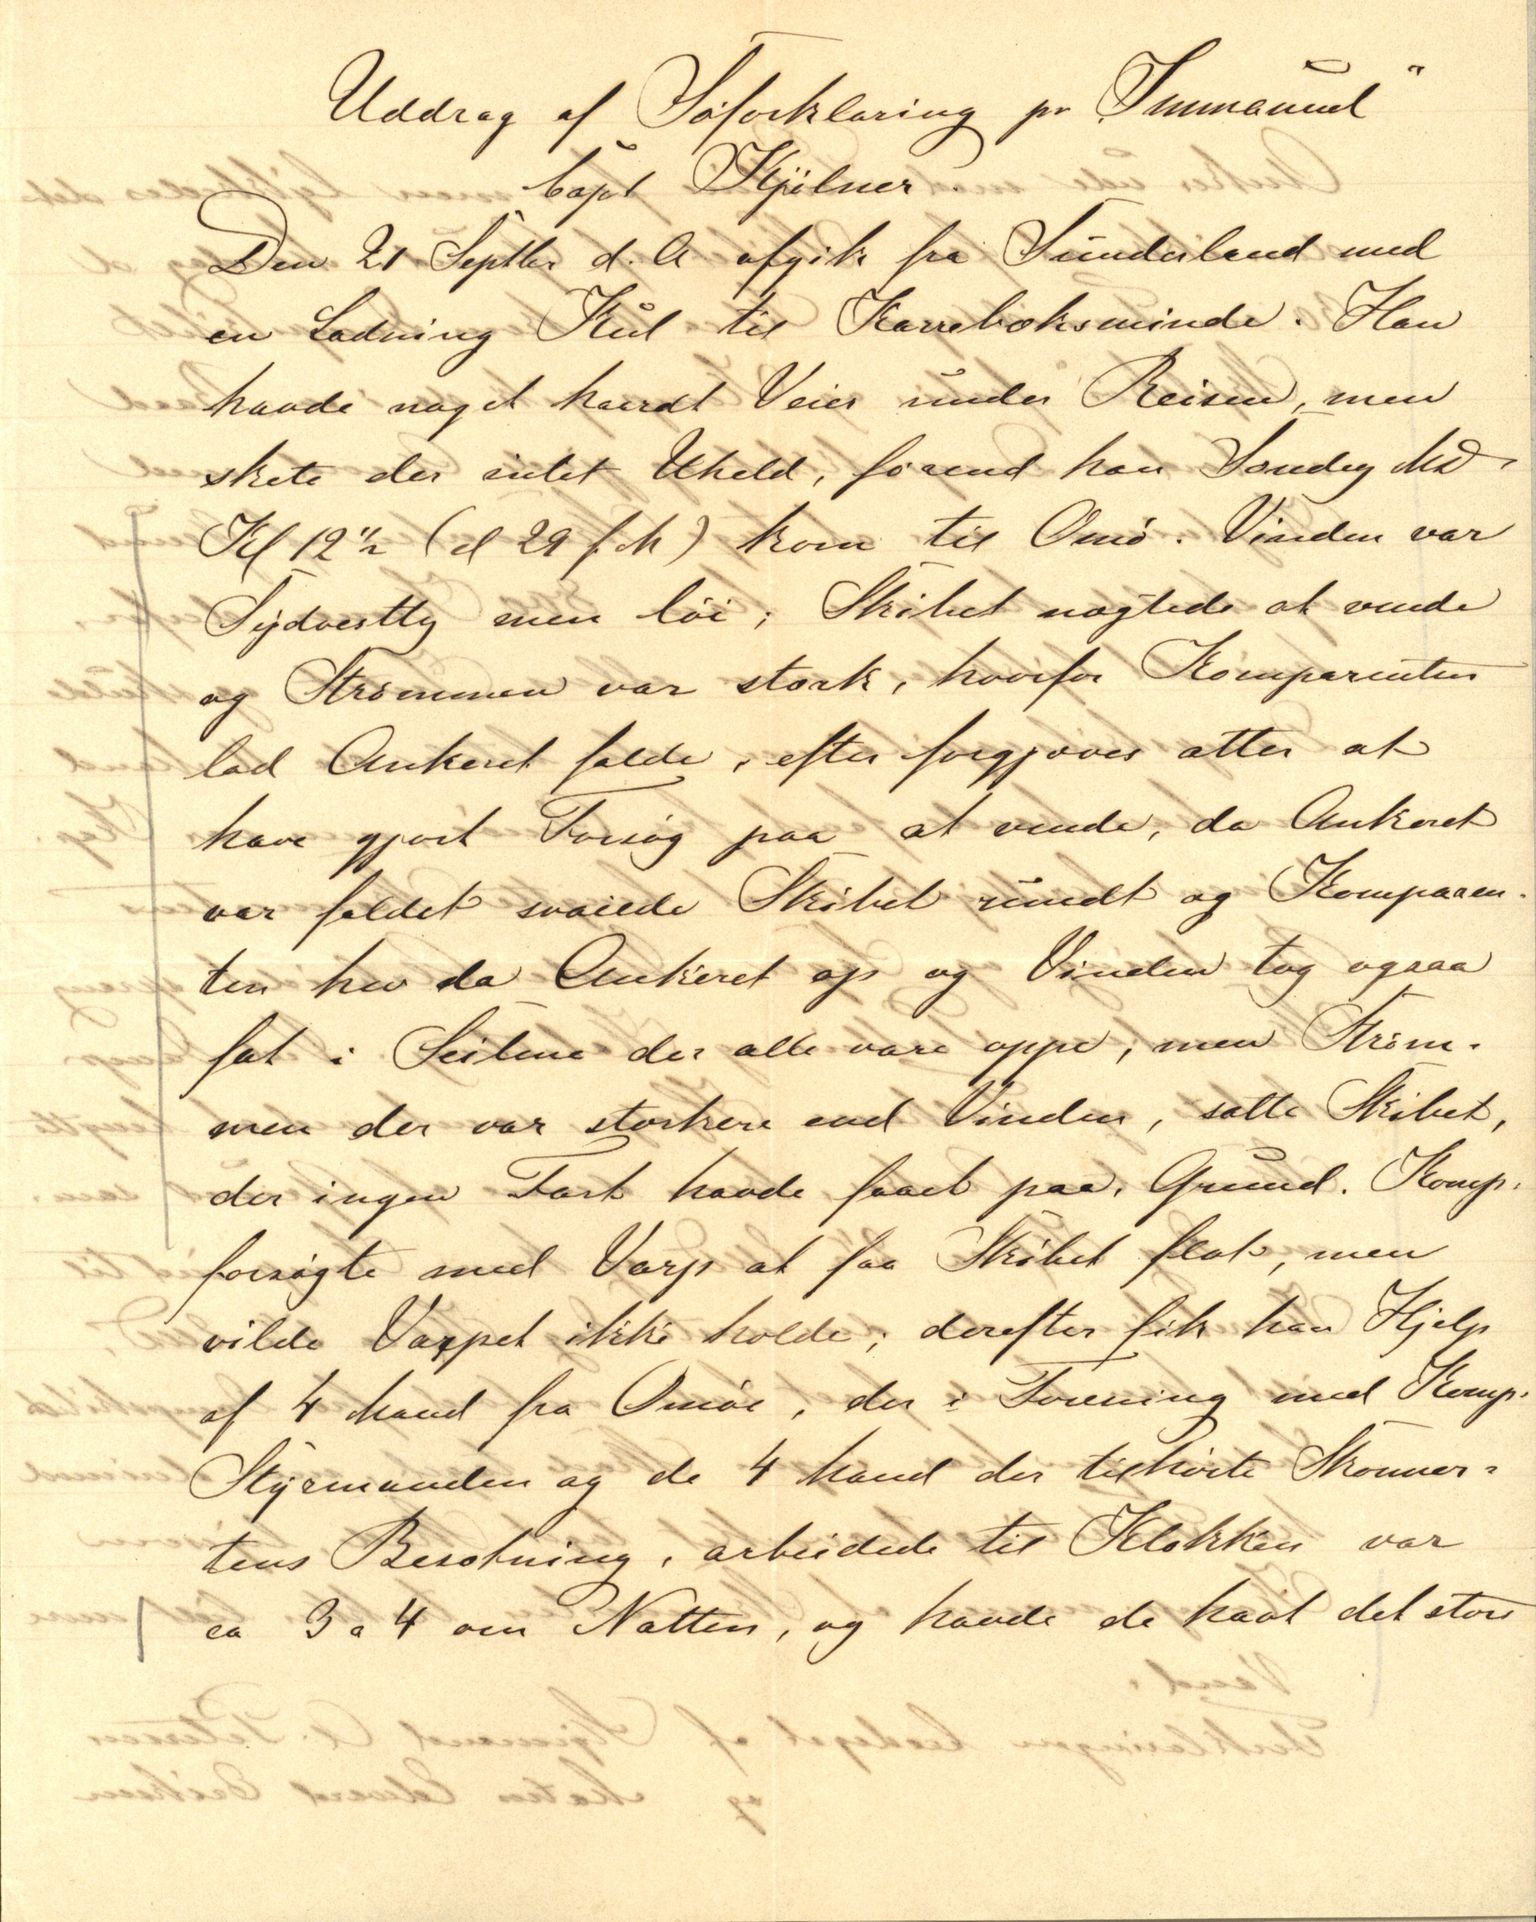 Uddrag af Søforklaring pr „Immanuel"
Capt Kjølner.
Den 21 Septbr d. A afgik fra Sunderland med
en Ladning Kul til Karrebæksminde. Han
havde noget haardt Veier under Reisen, men
skete der intet Uheld, førend han Søndag Md.
Kl 12½ (d 29 f. M) kom til Omø. Vinden var
Sydvestly men løi; Skibet nægtede at vende
og Strømmen var stærk, hvorfor Komparenten
lod Ankeret falde, efter forgjæves atter at
have gjort Forsøg paa at vende, da Ankeret
var faldet svaiede Skibet rundt og Komparen-
ten hev da Ankeret op og Vinden tog ogsaa
fat i Seilene der alle vare oppe, men Strøm-
men der var stærkere end Vinden, satte Skibet,
der ingen Fart havde faaet paa, Grund. Komp.
forsøgte med Varp at faa Skibet flot, men
vilde Varpet ikke holde; derefter fik han Hjelp
af 4 Mand fra Omøe, der i Forening med Komp.
Styrmanden og de 4 Mand der tilhørte Skonner-
tens Besætning, arbeidede til Klokken var
ca 3 a 4 om Natten, og havde de havt det store